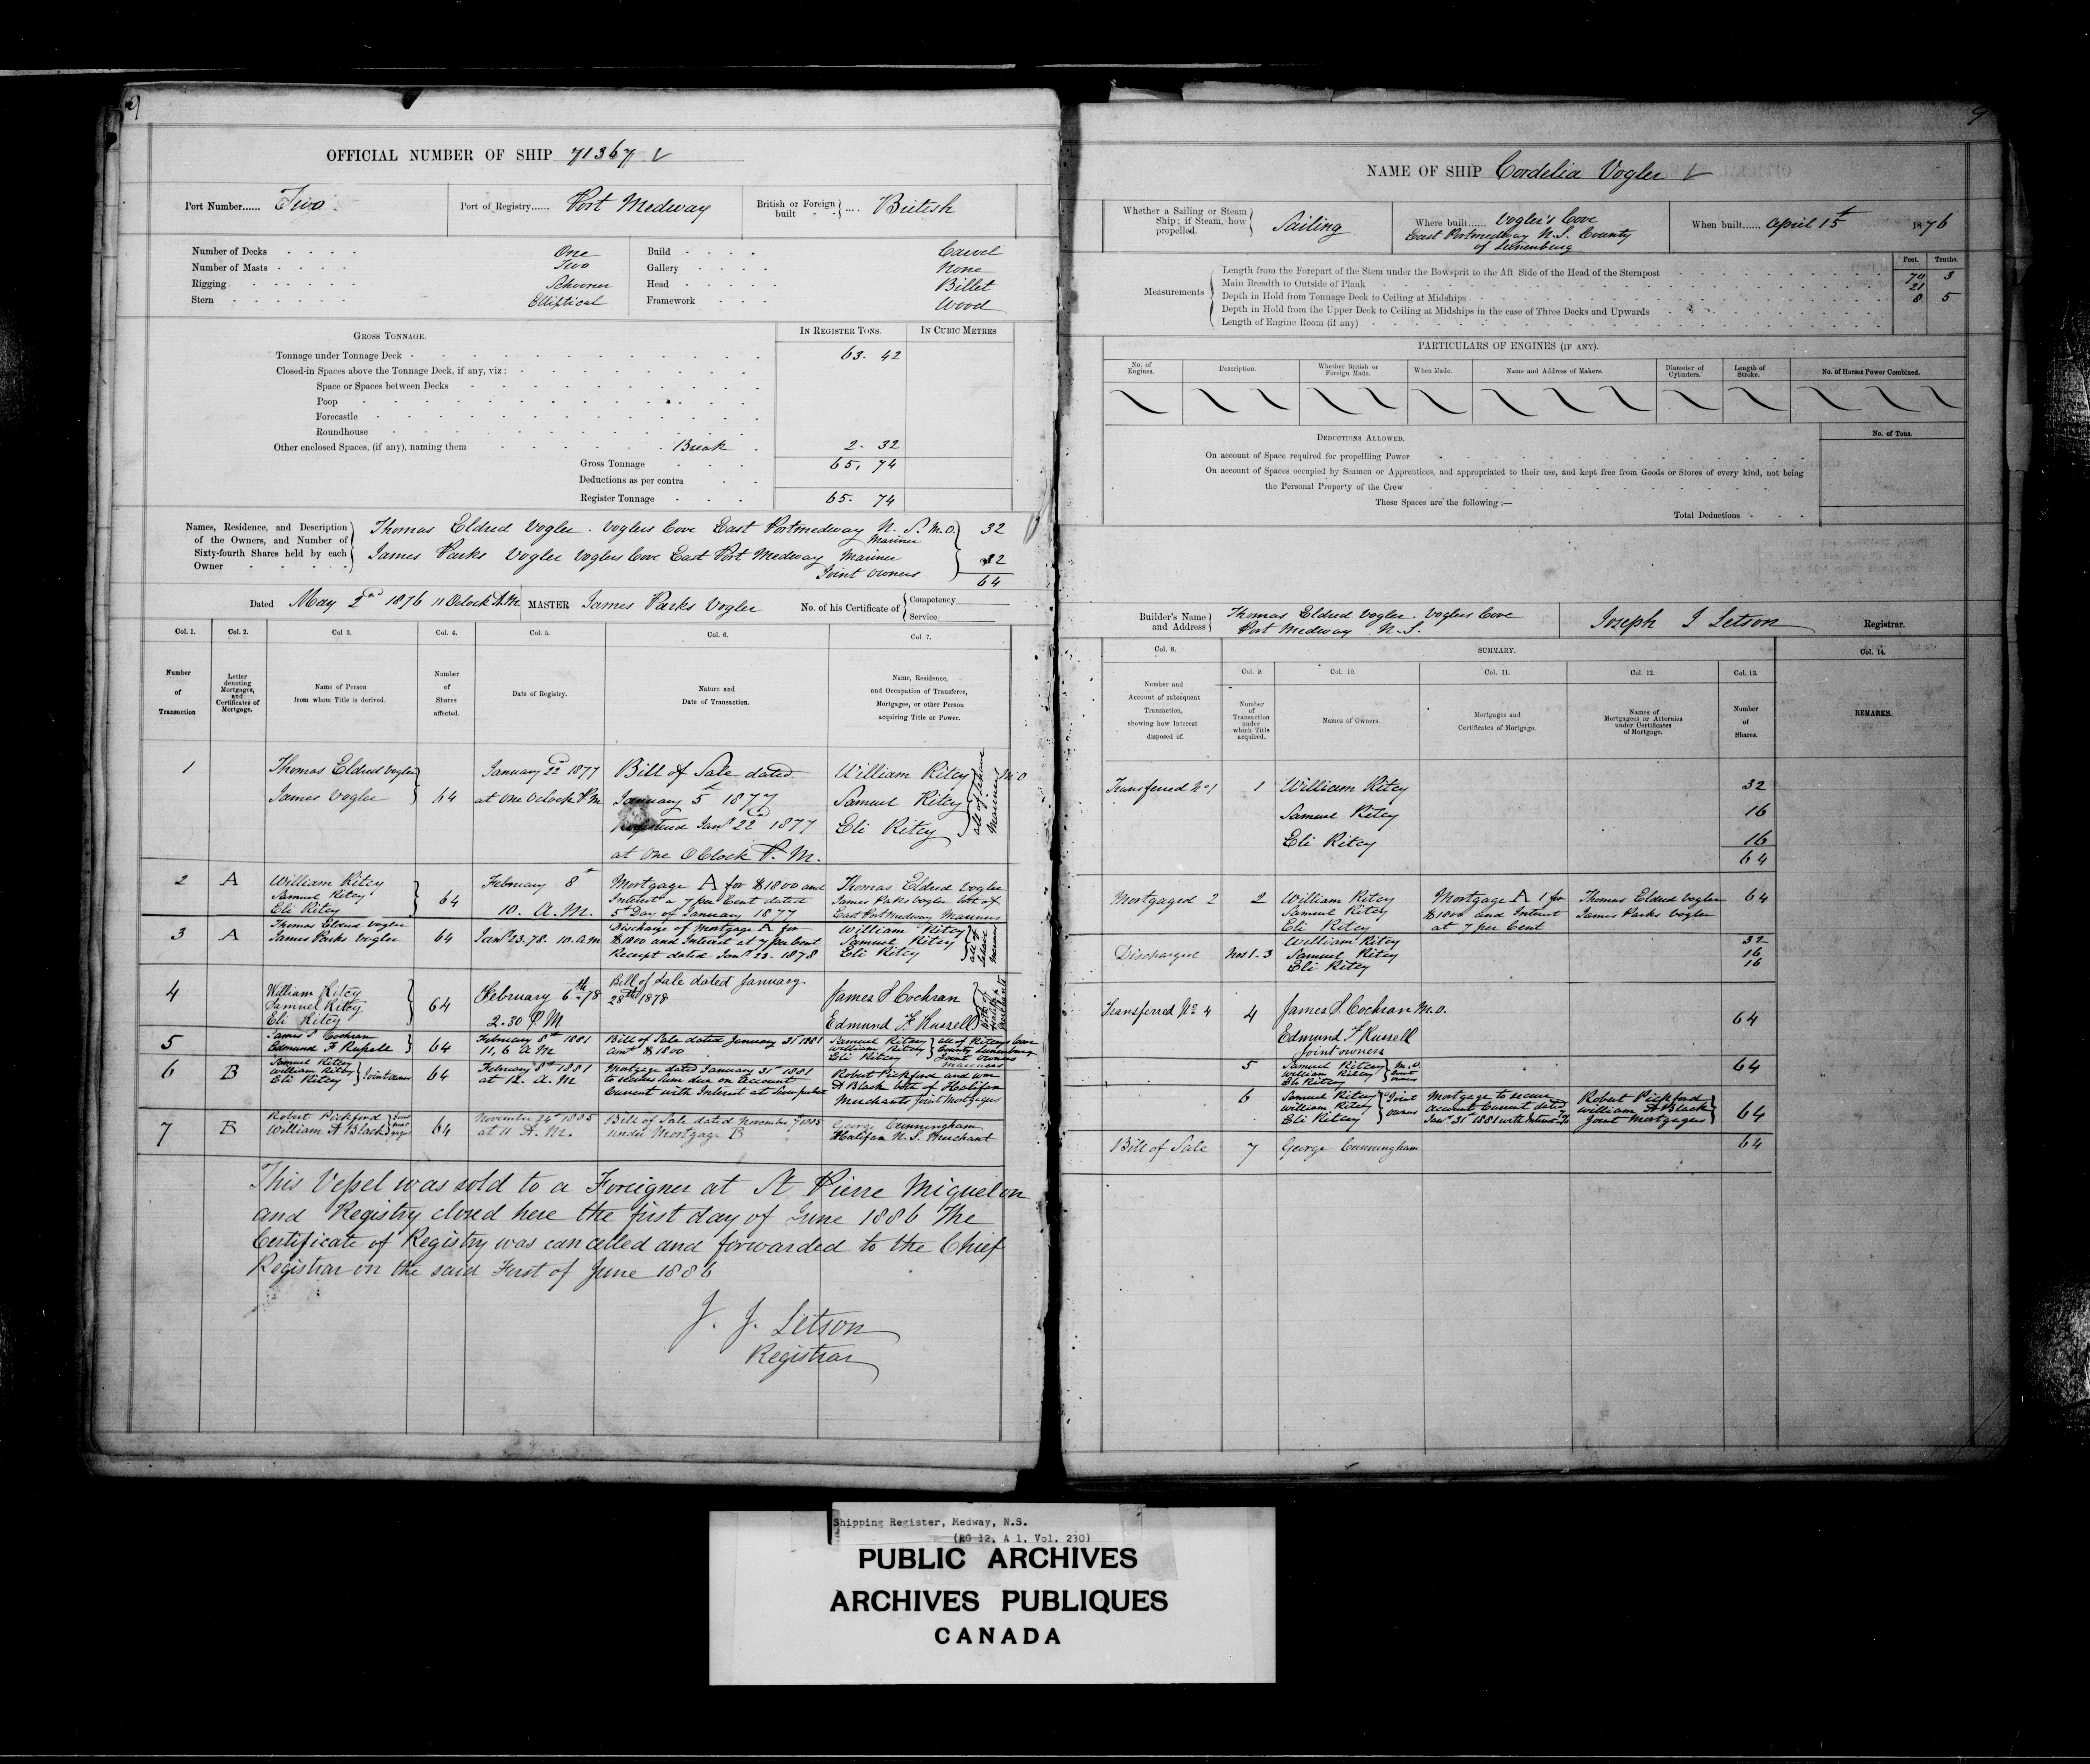 OFFICIAL NUMBER OF SHIP 71367
Port Number...... Two
Port of Registry...... Port Medway
British or Foreign built .... British
Number of Decks One
Number of Masts Two
Rigging Schooner
Stern Elliptical
Build Carvel
Gallery None
Head Billet
Framework Wood
GROSS TONNAGE.
IN REGISTER TONS.
IN CUBIC METRES
Tonnage under Tonnage Deck 63. 42
Closed-in Spaces above the Tonnage Deck, if any, viz:
Space or Spaces between Decks
Poop
Forecastle
Roundhouse
Other enclosed Spaces, (if any), naming them Break 2. 32
Gross Tonnage 65. 74
Deductions as per contra
Register Tonnage 65. 74
Names, Residence, and Description of the Owners, and Number of Sixty-fourth Shares held by each Owner
Thomas Eldred Vogler . Voglers Cove East Portmedway N. S. M.O. 32
Mariner
James Parks Vogler Voglers Cove East Port Medway Mariner 32
Joint Owners 64
Dated May 2nd 1876 11 Oclock A.M. MASTER James Parks Vogler No. of his Certificate of Competency Service
Col. 1. Col. 2. Col 3. Col. 4. Col. 5. Col. 6. Col. 7.
Number of Transaction
Letter denoting Mortgages, and Certificates of Mortgage.
Name of Person from whom Title is derived.
Number of Shares affected.
Date of Registry.
Nature and Date of Transaction.
Name, Residence, and Occupation of Transferee, Mortgagee, or other Person acquiring Title or Power.
1 Thomas Eldred Vogler January 22d 1877 Bill of Sale dated William Ritcy M.O
James Vogler 64 at One Oclock P.M. January 5t 1877 Samuel Ritcy all of Lahave Mariners
Registered Jany 22d 1877 Eli Ritcy
at One OClock P. M.
2 A William Ritcy February 8t Mortgage A for $1800 and Thomas Eldred Vogler
Samuel Ritcy 64 Interest a 7 per Cent dated James Parks Vogler both of
Eli Ritcy 10. A.M. 5t Day of January 1877 East Port Medway Mariners
3 A Thomas Eldred Vogler Discharge of Mortgage A for William Ritcy
James Parks Vogler 64 Jany 23.78. 10. a.m $1800 and Interest at 7 per Cent Samuel Ritcy all of Lahave
Receipt dated Jany 23. 1878 Eli Ritcy
4 William Ritcy February 6th 78 Bill of Sale dated January
Samuel Ritcy 64 28th 1878 James S Cochran
Eli Ritcy 2.30 P.M Edmund F Russell both of Halifax Merchants
5 James S Cochran February 8th 1881 Bill of Sale dated January 31 1881 Samuel Ritcey all of Ritceys Cove
Edmund F Russell 64 11, 6 A M amt $1800 William Ritcey County Lunenburg
Eli Ritcey Joint Owners
Mariners
6 B Samuel Ritcey February 8th 1881 Mortgage dated January 31st 1881 Robert Pickford and Wm
William Ritcey Joint Owners 64 at 12. A.M to secure Sum due on account A Black both of Halifax
Eli Ritcey Current with Interest at Seven per cent Merchants Joint Mortgagees
7 B Robert Pickford November 24th 1885 Bill of Sale dated November 7 1885 George Cunningham
William A Black 64 at 11 A.M. under Mortgage B Halifax N.S. Merchant
This Vessel was sold to a Foreigner at St Pierre Miquelon
and Registry closed here the first day of June 1886 The
Certificate of Registry was cancelled and forwarded to the Chief
Registrar on the said First of June 1886
J. J. Letson
Registrar
9
NAME OF SHIP Cordelia Vogler
Whether a Sailing or Steam Ship; if Steam, how propelled. Sailing
Where built...... Vogler's Cove
East Portmedway N.S. County
of Lunenburg
When built...... April 15t 1876
Feet. Tenths.
Measurements
Length from the Forepart of the Stem under the Bowsprit to the Aft Side of the Head of the Sternpost 70 3
Main Breadth to Outside of Plank 21
Depth in Hold from Tonnage Deck to Ceiling at Midships 8 5
Depth in Hold from the Upper Deck to Ceiling at Midships in the case of Three Decks and Upwards
Length of Engine Room (if any)
PARTICULARS OF ENGINES (IF ANY).
No. of Engines.
Description.
Whether British or Foreign Made.
When Made.
Name and Address of Makers.
Diameter of Cylinders.
Length of Stroke.
No. of Horses Power Combined.
DEDUCTIONS ALLOWED.
No. of Tons.
On account of Space required for propelling Power
On account of Spaces occupied by Seamen or Apprentices, and appropriated to their use, and kept free from Goods or Stores of every kind, not being
the Personal Property of the Crew
These Spaces are the following :—
Total Deductions
Builder's Name and Address Thomas Eldred Vogler. Voglers Cove
Port Medway N.S.
Joseph J Letson Registrar.
Col. 8. SUMMARY. Col. 14.
Col. 9. Col. 10. Col. 11. Col. 12. Col. 13.
Number and Account of subsequent Transaction, showing how Interest disposed of.
Number of Transaction under which Title acquired.
Names of Owners.
Mortgages and Certificates of Mortgage.
Names of Mortgagees or Attornies under Certificates of Mortgage.
Number of Shares.
REMARKS.
Transferred No 1 1 William Ritcy 32
Samuel Ritcy 16
Eli Ritcy 16
64
Mortgaged 2 2 William Ritcy Mortgage A 1 for Thomas Eldred Vogler 64
Samuel Ritcy $1800 and Interest James Parks Vogler
Eli Ritcy at 7 per Cent
Discharged Nos 1-3 William Ritcy 32
Samuel Ritcy 16
Eli Ritcy 16
Transferred No 4 4 James S. Cochran M.O.
Edmund F Russell 64
Joint owners
5 Samuel Ritcey M.O. 64
William Ritcey Joint
Eli Ritcey owners
6 Samuel Ritcey Joint Mortgage to secure Robert Pickford
William Ritcey owners account Current dated William A Black 64
Eli Ritcey Jany 31st 1881 with Interest Joint Mortgagees
Bill of Sale 7 George Cunningham 64
Shipping Register, Medway, N.S.
(RG 12, A 1, Vol. 230)
PUBLIC ARCHIVES
ARCHIVES PUBLIQUES
CANADA